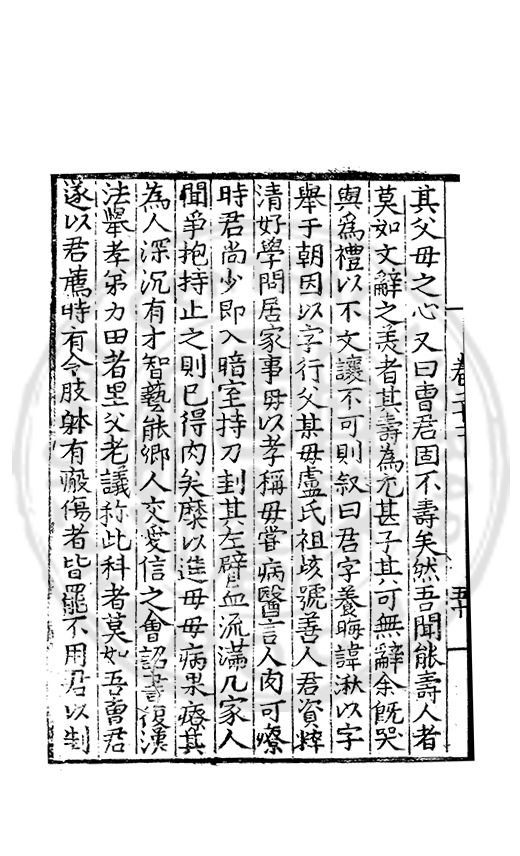 其父母之心又曰曹君固不壽矣然吾聞能壽人者
莫如文辭之羙者其壽為尤甚子其可無辭余旣哭
與爲禮以不文讓不可則叙曰君字養晦諱湫以字
舉于朝因以字行父某母盧氏祖垓號善人君資粹
清好學問居家事毋以孝稱毋嘗病醫言人肉可療
時君尚少即入暗室持刀刲其左臂血流滿几家人
聞爭抱持止之則已得肉矣糜以進毋毋病果瘳其
為人深沉有才智藝能鄉人交愛信之會詔書復漢
法舉孝弟力田者里父老議称此科者莫如吾曹君
遂以君薦時有令肢躰有瘢傷者皆罷不用君以刲